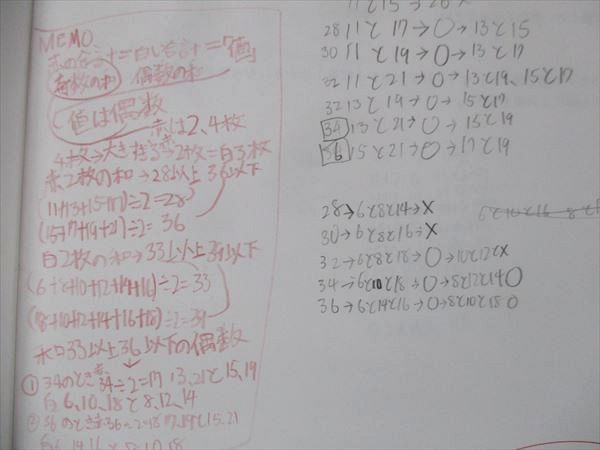 MEMO
赤の合計=白い合計=「値」
奇数の和 偶数の和
値は偶数
赤は2、4枚
4枚→大きすぎる→2枚=白3枚
赤2枚の和→28以上36以下
(11+13+15+17)÷2=28
(15+17+19+21)÷2=36
白2枚の和→33以上39以下
(6+8+10+12+14+16)÷2=33
(8+10+12+14+16+18)÷2=39
33以上36以下の偶数
①34のとき赤34÷2=17 13、21と15、19
白6、10、18と8、12、14
②36のとき赤36÷2=18 17、19と15、21
28 11と17→○→13と15
30 11と19→○→13と17
32 11と21→○→13と19、15と17
32 13と19→○→15と17
34 13と21→○→15と19
36 15と21→○→17と19
28→6と8と14→×
30→6と8と16→×
32→6と8と18→○→10と12と×
34→6と10と18→○→8と12と14○
36→6と14と16→○→8と10と18○